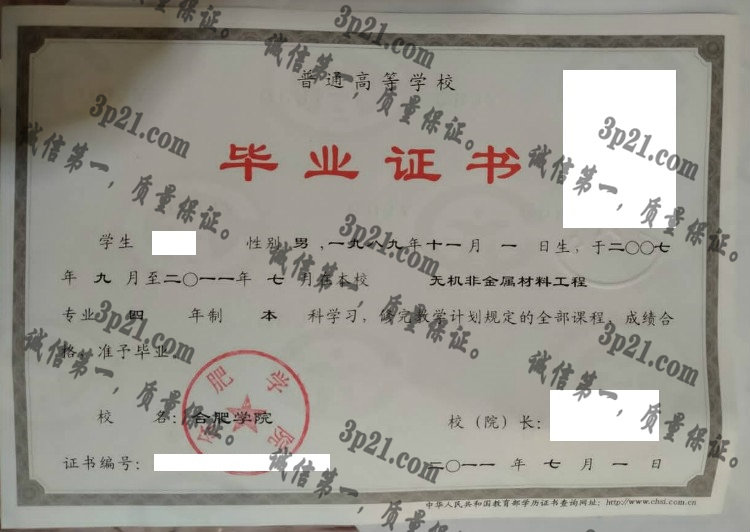 普通高等学校
毕业证书
学生 性别 男 ,一九八九年十一月 一 日生, 于二〇〇七
年 九 月至二〇一一年 七 月在本校 无机非金属材料工程
专业 四 年制 本 科学习, 修完教学计划规定的全部课程, 成绩合
格, 准予毕业。
校 名: 合肥学院 校(院)长:
合肥学院
证书编号: 二〇一一 年 七 月 一 日
中华人民共和国教育部学历证书查询网址: http://www.chsi.com.cn
3p21.com
诚信第一,质量保证。
3p21.com
诚信第一,质量保证。
3p21.com
诚信第一,质量保证。
3p21.com
诚信第一,质量保证。
3p21.com
诚信第一,质量保证。
3p21.com
诚信第一,质量保证。
3p21.com
诚信第一,质量保证。
3p21.com